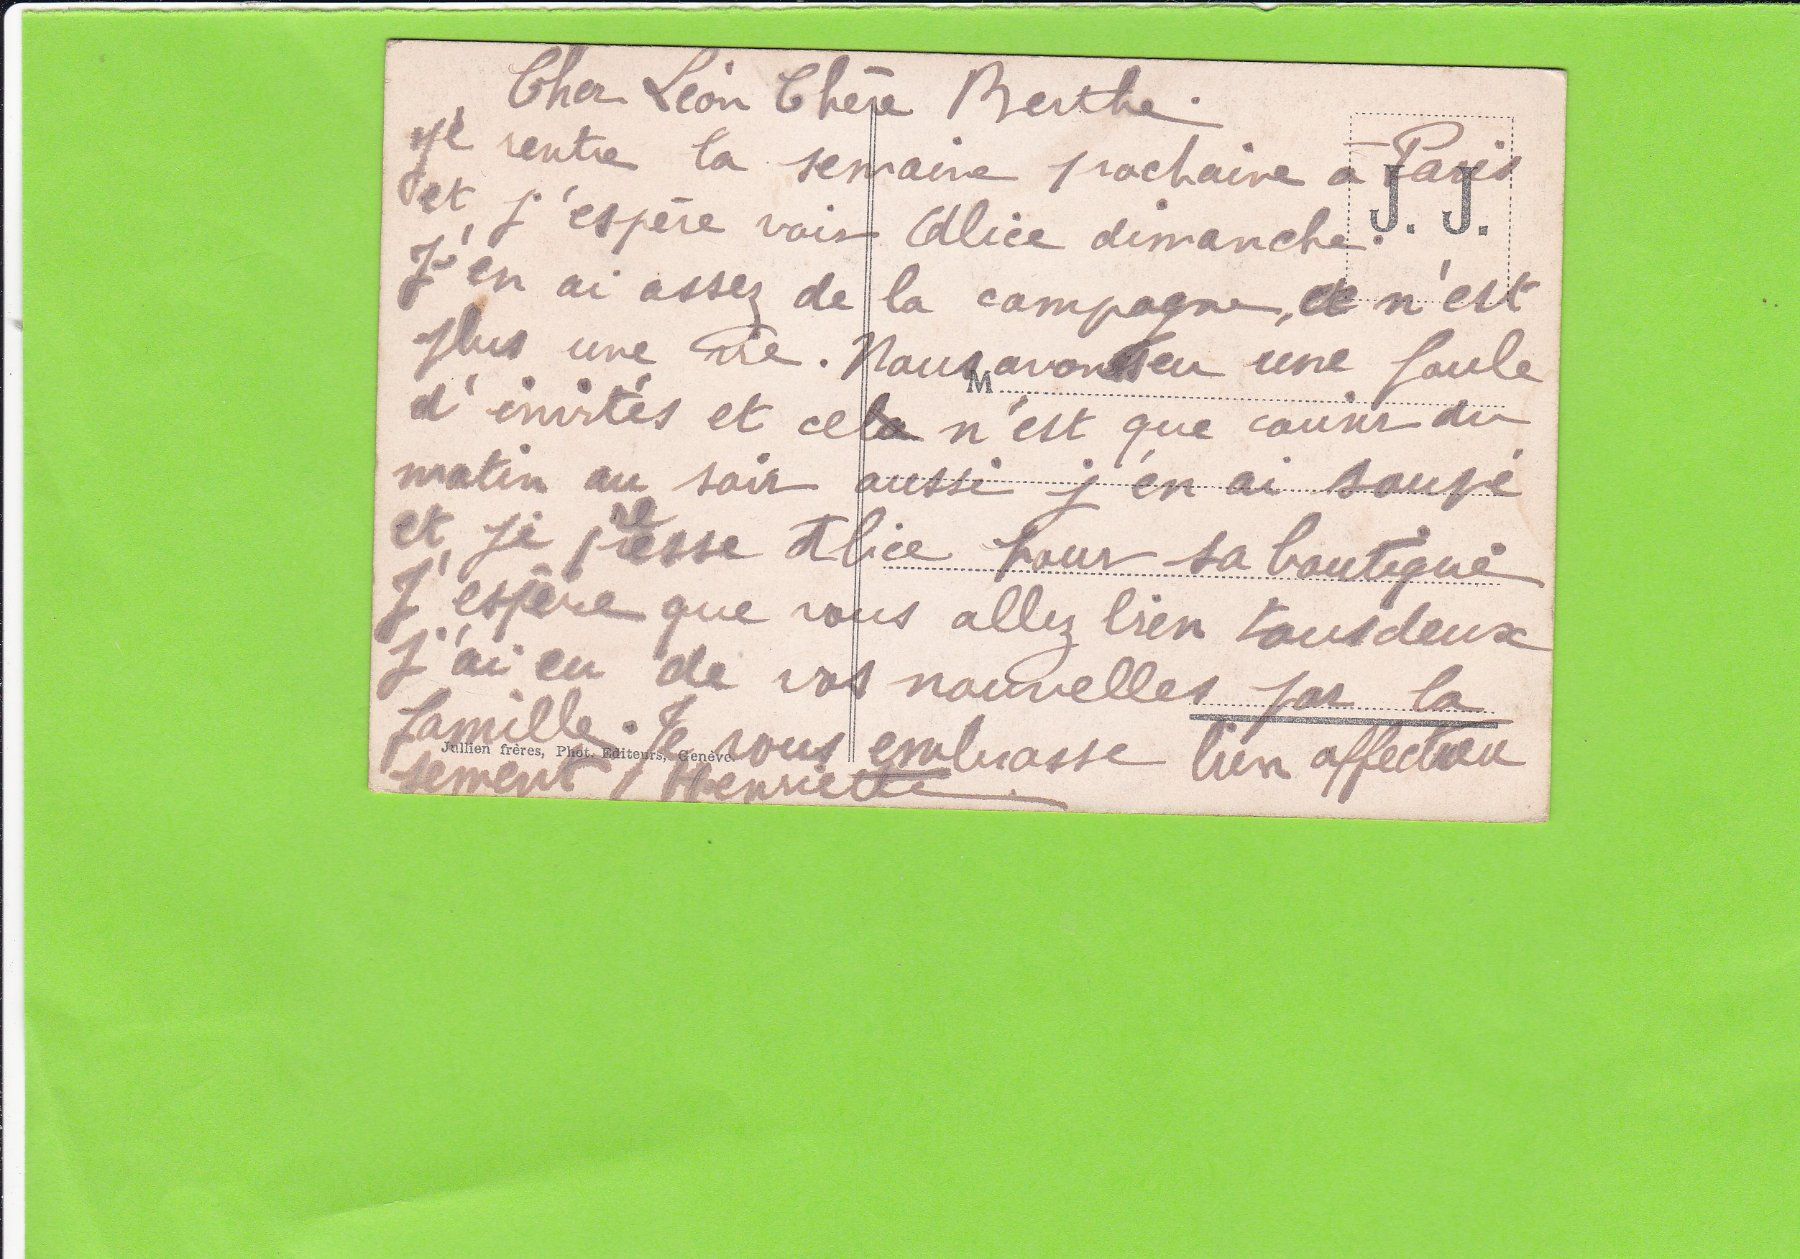 Cher Léon Chère Berthe.
je rentre la semaine prochaine à Paris
et j'espère voir Alice dimanche.
J'en ai assez de la campagne, ce n'est
plus une vie. Nous avons eu une foule
d'invités et cela n'est que courir du
matin au soir aussi j'en ai soupé
et je presse Alice pour sa boutique
J'espère que vous allez bien tous deux
j'ai eu de vos nouvelles par la
famille. Je vous embrasse bien affectueu
sement Henriette
J. J.
M
Jullien frères, Phot. Editeurs, Genève.